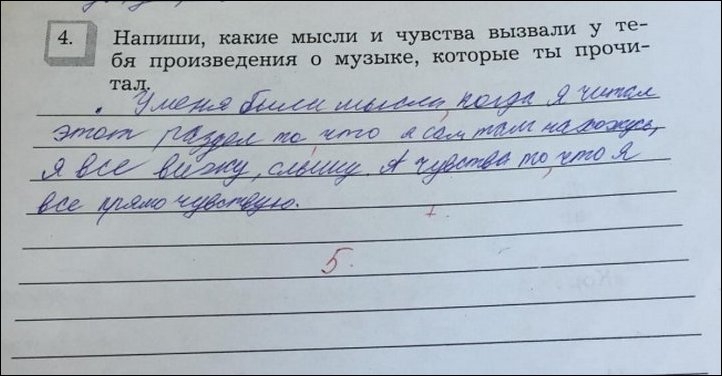 4. Напиши, какие мысли и чувства вызвали у те-
бя произведения о музыке, которые ты прочи-
тал.
У меня были мысли, когда я читал
этот раздел то, что я сам там нахожусь,
я все вижу, слышу. А чувства то, что я
все прямо чувствую.
+.
5.